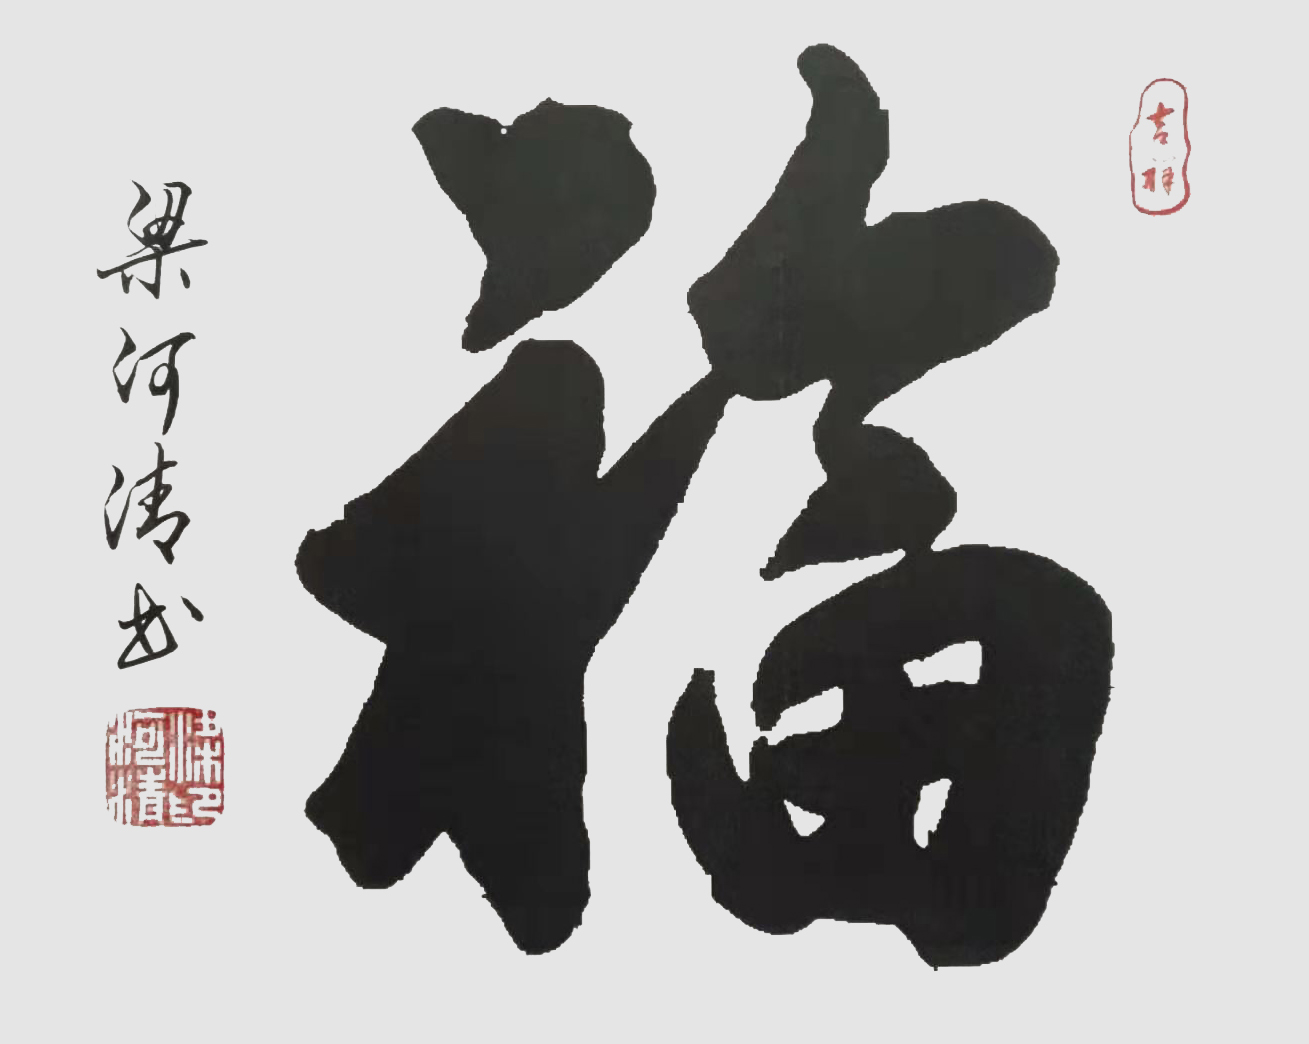 吉祥
福
梁河清书
梁印
河清